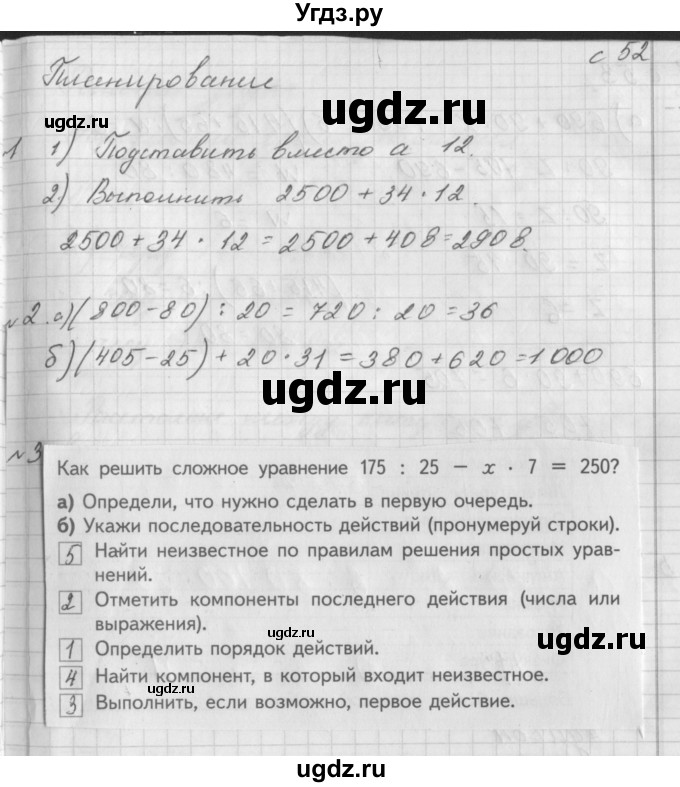 Угдз.ру
с 52
Планирование
ugdz.ru
ugdz.ru
1 1) Подставить вместо а 12.
2) Выполнить 2500 + 34 · 12.
2500 + 34 · 12 = 2500 + 408 = 2908.
ugdz.ru
№2. а) (800 - 80) : 20 = 720 : 20 = 36
б) (405 - 25) + 20 · 31 = 380 + 620 = 1000
ugdz.ru
№3
Как решить сложное уравнение 175 : 25 − x · 7 = 250?
а) Определи, что нужно сделать в первую очередь.
б) Укажи последовательность действий (пронумеруй строки).
5 Найти неизвестное по правилам решения простых урав-
нений.
2 Отметить компоненты последнего действия (числа или
выражения).
ugdz.ru
ugdz.ru
1 Определить порядок действий.
4 Найти компонент, в который входит неизвестное.
ugdz.ru
3 Выполнить, если возможно, первое действие.
ugdz.ru